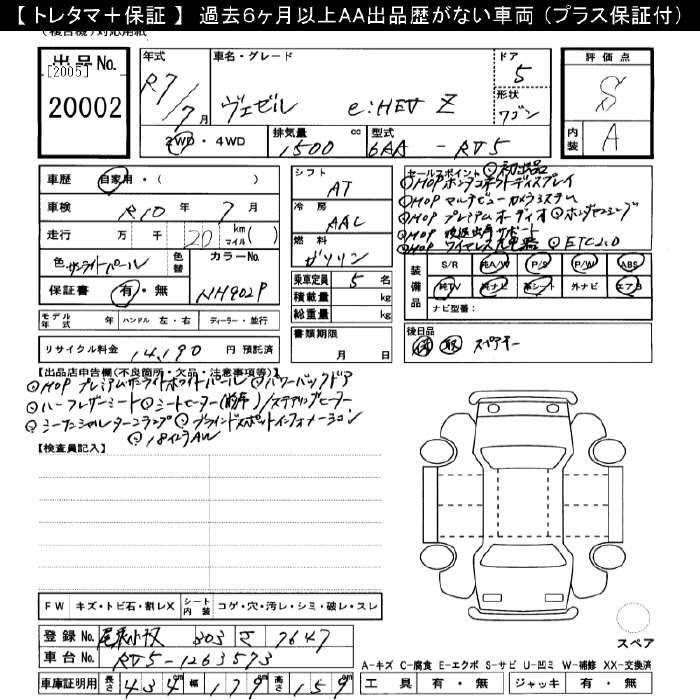 【 トレタマ＋保証 】 過去6ヶ月以上AA出品歴がない車両 (プラス保証付)
出品No.
[2005]
20002
年式
R7/7月
車名・グレード
ヴェゼル e:HEV Z
ドア
5
形状
ワゴン
評価点
S
内装
A
2WD・4WD
排気量 1500 cc
型式 6AA - RV5
車歴 自家用・( )
車検 R10 年 7 月
走行 万 千 20 km マイル( )
色 サンライトパール
色替
カラーNo.
NH902P
保証書 有・無
シフト
AT
冷房
AAC
燃料
ガソリン
乗車定員 5 名
積載量 kg
総重量 kg
セールスポイント ○初出品
○MOP ホンダコネクトディスプレイ
○MOP マルチビューカメラシステム
○MOP プレミアムオーディオ ○ホンダセンシング
○MOP 後退出庫サポート
○MOP ワイヤレス充電器 ○ETC2.0
装備品
S/R 純A/W P/S P/W ABS
純TV 純ナビ 革シート 外ナビ エアB
ナビ型堕:
モデル年式 年 ハンドル 左・右 ディーラー・並行
リサイクル料金 14,190 円 預託済
書類期限
月 日
後日品
保 取 スペアキー
【出品店申告欄(不良箇所・欠品・注意事項等)】
○MOP プレミアムサンライトホワイトパール ○パワーバックドア
○ハーフレザーシート ○シートヒーター(前席)/ステアリングヒーター
○シーケンシャルターンランプ ○ブラインドスポットインフォメーション
○18インチAW
【検査員記入】
FW キズ・トビ石・割レX シート内装 コゲ・穴・汚レ・シミ・破レ・スレ
登録No. 尾張小牧 303 て 7647
車台No. RV5-1263573
車庫証明用 長さ 434cm 幅 179cm 高さ 159cm
スペア
A-キズ C-腐食 E-エクボ S-サビ U-凹ミ W-補修 XX-交換済
工具 有・無 ジャッキ 有・無